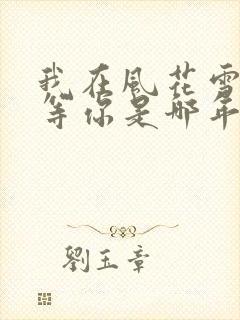 我在風花雪
等你是那年
劉玉章